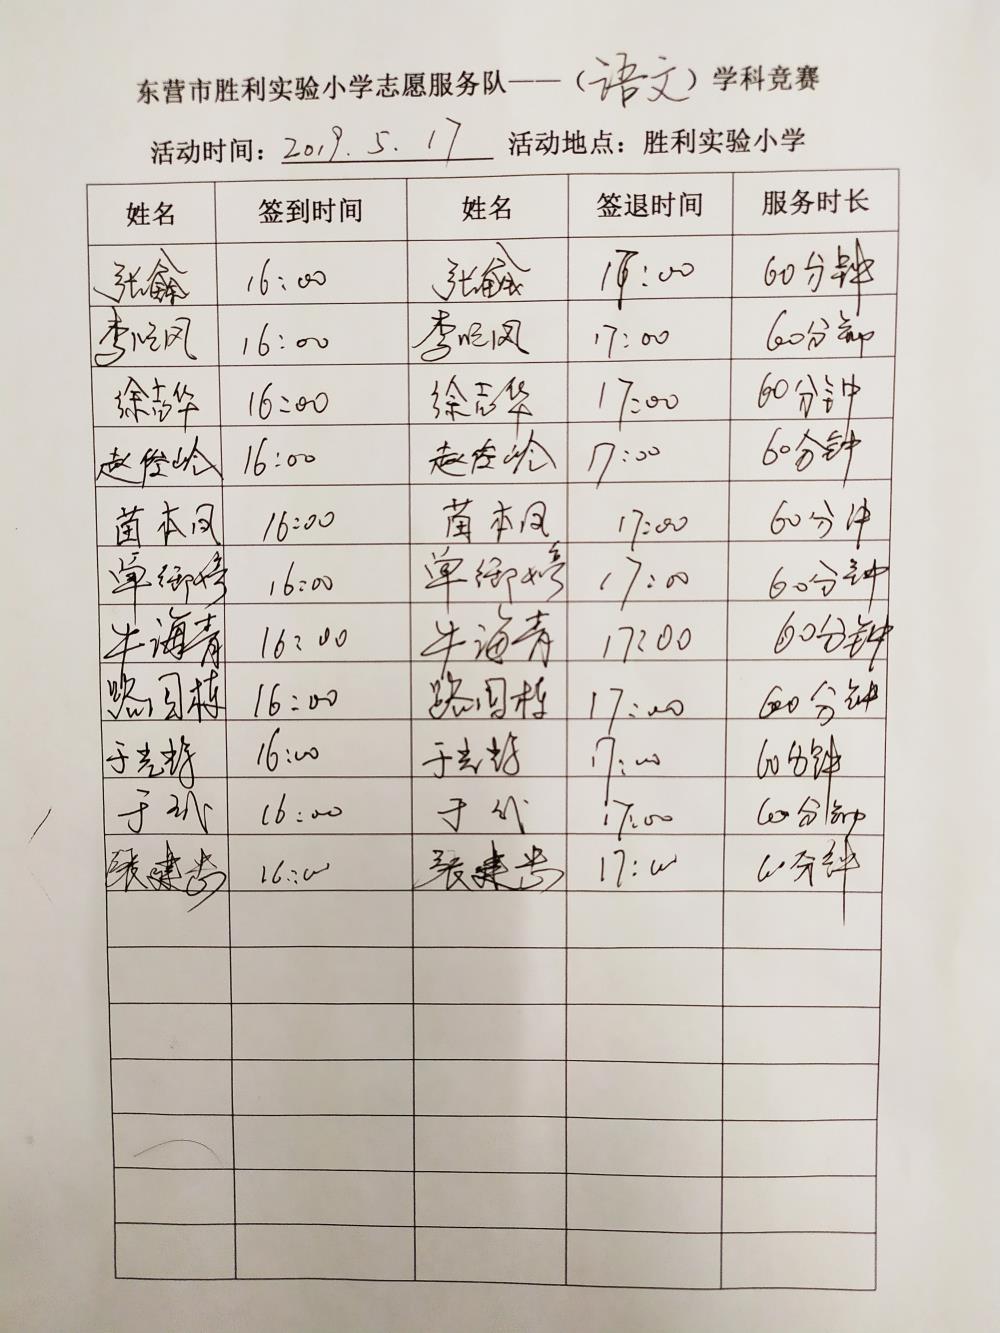 东营市胜利实验小学志愿服务队——（语文）学科竞赛
活动时间：2019.5.17 活动地点：胜利实验小学
姓名 签到时间 姓名 签退时间 服务时长
张鑫 16:00 张鑫 17:00 60分钟
16:00 17:00 60分钟
徐志华 16:00 徐志华 17:00 60分钟
赵俊岭 16:00 赵俊岭 17:00 60分钟
苗本凤 16:00 苗本凤 17:00 60分钟
单御婷 16:00 单御婷 17:00 60分钟
牛海青 16:00 牛海青 17:00 60分钟
路国栋 16:00 路国栋 17:00 60分钟
16:00 17:00 60分钟
16:00 17:00 60分钟
张建 16:00 张建 17:00 60分钟